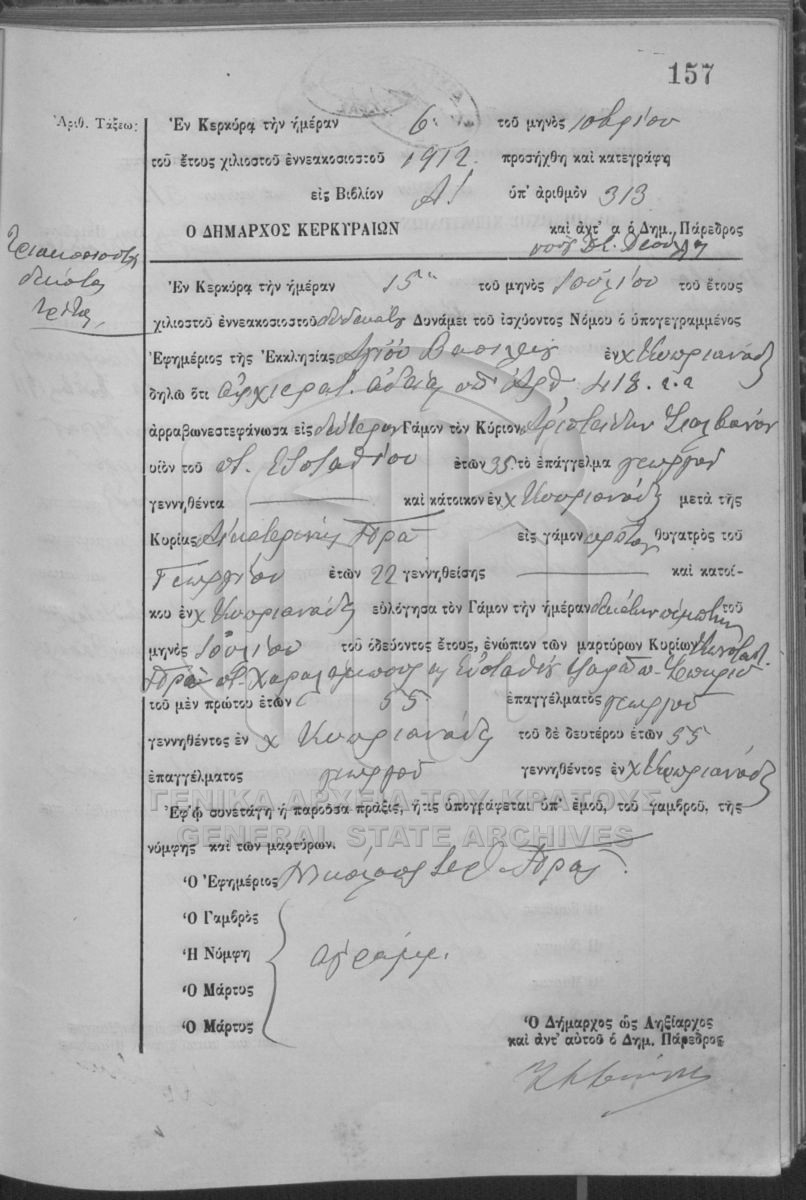 157
Ἀριθ. Τάξεως:
Ἐν Κερκύρᾳ τὴν ἡμέραν 6 τοῦ μηνὸς
τοῦ ἔτους χιλιοστοῦ ἐννεακοσιοστοῦ 1912. προσήχθη καὶ κατεγράφη
εἰς Βιβλίον Α! ὑπ' ἀριθμὸν 313
Ο ΔΗΜΑΡΧΟΣ ΚΕΡΚΥΡΑΙΩΝ καὶ ἀντ' α ὁ Δημ. Πάρεδρος
Τριακοσιοστὴ
δεκάτη
τρίτη
Ἐν Κερκύρᾳ τὴν ἡμέραν 15 τοῦ μηνὸς Ἰουλίου τοῦ ἔτους
χιλιοστοῦ ἐννεακοσιοστοῦ δωδεκάτου Δυνάμει τοῦ ἰσχύοντος Νόμου ὁ ὑπογεγραμμένος
Ἐφημέριος τῆς Ἐκκλησίας Ἁγίου Βασιλείου ἐν χ Κυπριανάδ
δηλῶ ὅτι ἀρχιερατ. ἀδείᾳ ὑπ' ἀρθ 418. ε.ε
ἀρραβωνεστεφάνωσα εἰς δεύτερον Γάμον τὸν Κύριον Ἀριστείδην
υἱὸν τοῦ π. Εὐσταθίου ἐτῶν 35 τὸ ἐπάγγελμα γεωργοῦ
γεννηθέντα — καὶ κάτοικον ἐν χ Κυπριανάδ μετὰ τῆς
Κυρίας Αἰκατερίνης Πρα εἰς γάμον πρῶτον θυγατρὸς τοῦ
Γεωργίου ἐτῶν 22 γεννηθείσης — καὶ κατοί-
κου ἐν χ Κυπριανάδ εὐλόγησα τὸν Γάμον τὴν ἡμέραν δεκάτην πέμπτην τοῦ
μηνὸς Ἰουλίου τοῦ ὁδεύοντος ἔτους, ἐνώπιον τῶν μαρτύρων Κυρίων Κωνσταντ.
Πρα π. Χαραλάμπους κ Εὐσταθίου
τοῦ μὲν πρώτου ἐτῶν 55 ἐπαγγέλματος γεωργοῦ
γεννηθέντος ἐν χ Κυπριανάδ τοῦ δὲ δευτέρου ἐτῶν 55
ἐπαγγέλματος γεωργοῦ γεννηθέντος ἐν χ Κυπριανάδ
ΓΕΝΙΚΑ ΑΡΧΕΙΑ ΤΟΥ ΚΡΑΤΟΥΣ
Ἐφ' ᾧ συνετάγη ἡ παροῦσα πρᾶξις, ἥτις ὑπογράφεται ὑπ' ἐμοῦ, τοῦ γαμβροῦ, τῆς
GENERAL STATE ARCHIVES
νύμφης καὶ τῶν μαρτύρων.
Ὁ Ἐφημέριος Νικόλαος Ιερ. Πρας
Ὁ Γαμβρὸς
Ἡ Νύμφη ἀγράμμ.
Ὁ Μάρτυς
Ὁ Μάρτυς
Ὁ Δήμαρχος ὡς Ληξίαρχος
καὶ ἀντ' αὐτοῦ ὁ Δημ. Πάρεδρος